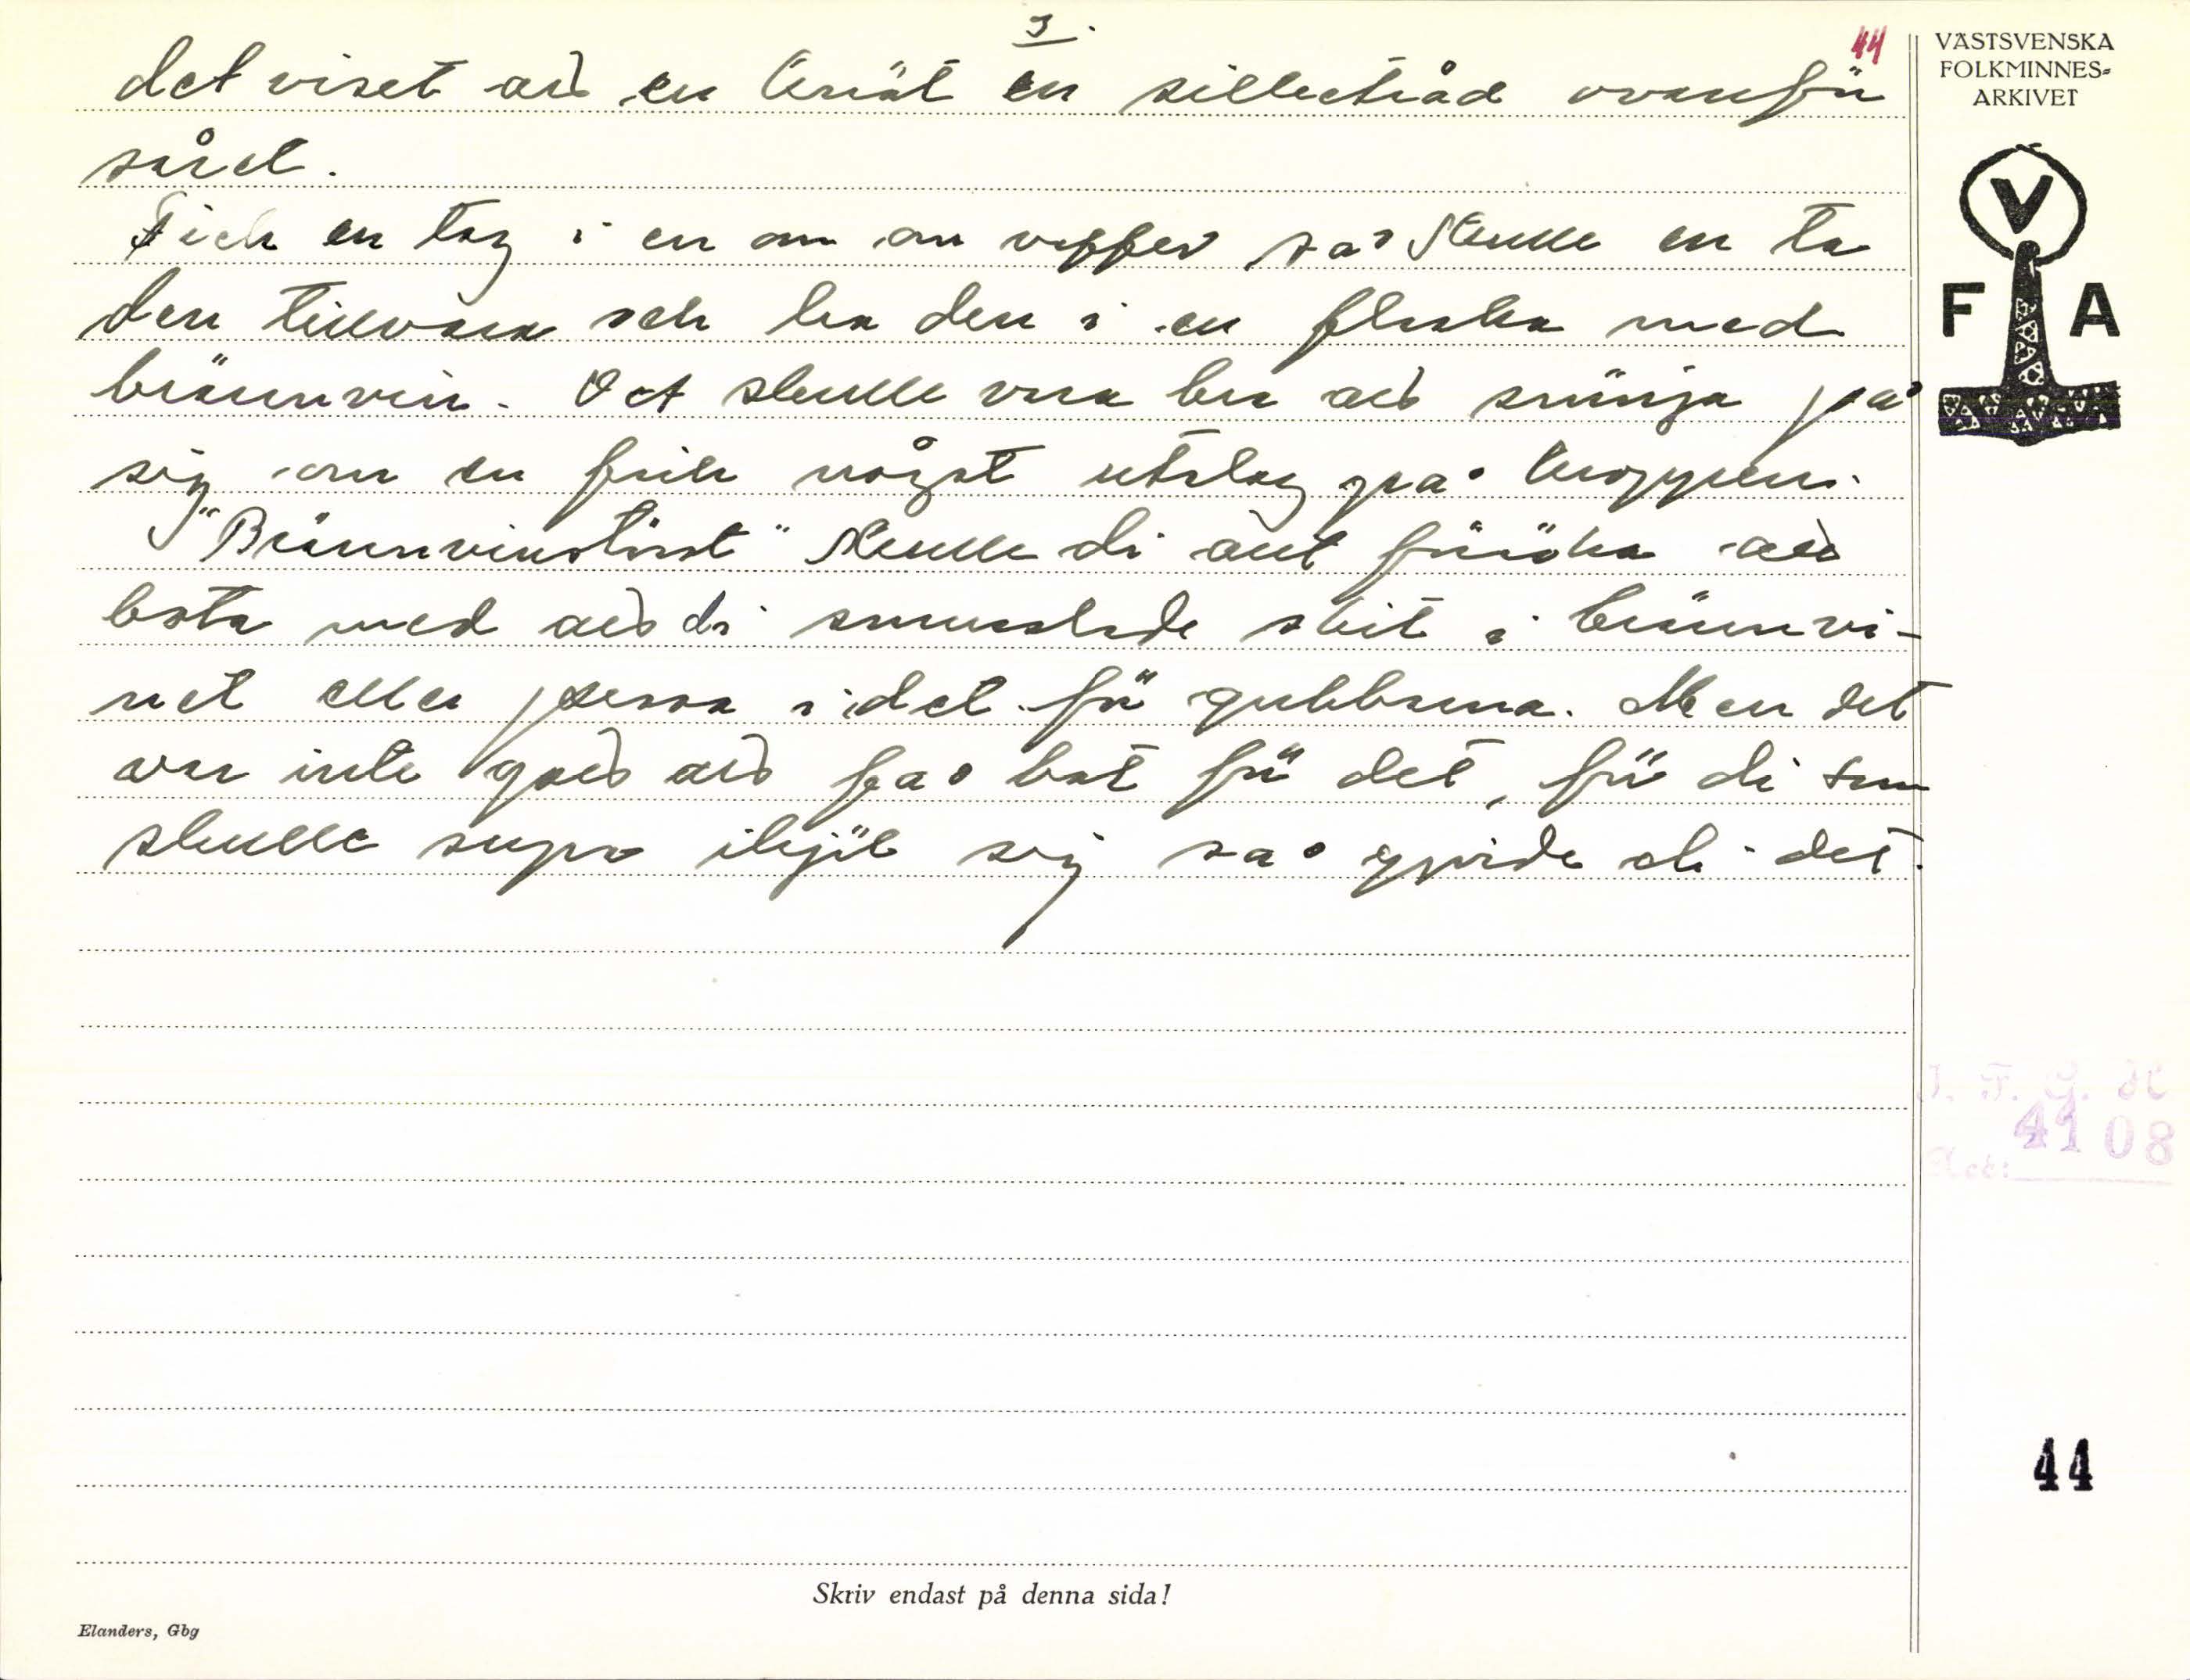 3.
44
det viset att en knöt en silketråd ovanför
såret.
Fick en tag i en orm så skulle en ta
den tillvara och ha den i en flaska med
brännvin. Det skulle vara bra att smörja på
sig om en fick något utslag på kroppen.
"Brännvinstörst" skulle di änt försöka att
bota med att di smusslade skit i brännvi-
net eller pessa i det för gubbarna. Men det
var inte gott att få bot för det, för di som
skulle supa ihjäl sig så gjorde di det.
VÄSTSVENSKA
FOLKMINNES-
ARKIVET
V
F A
I. F. G. M
4108
Acc:
44
Skriv endast på denna sida!
Elanders, Gbg